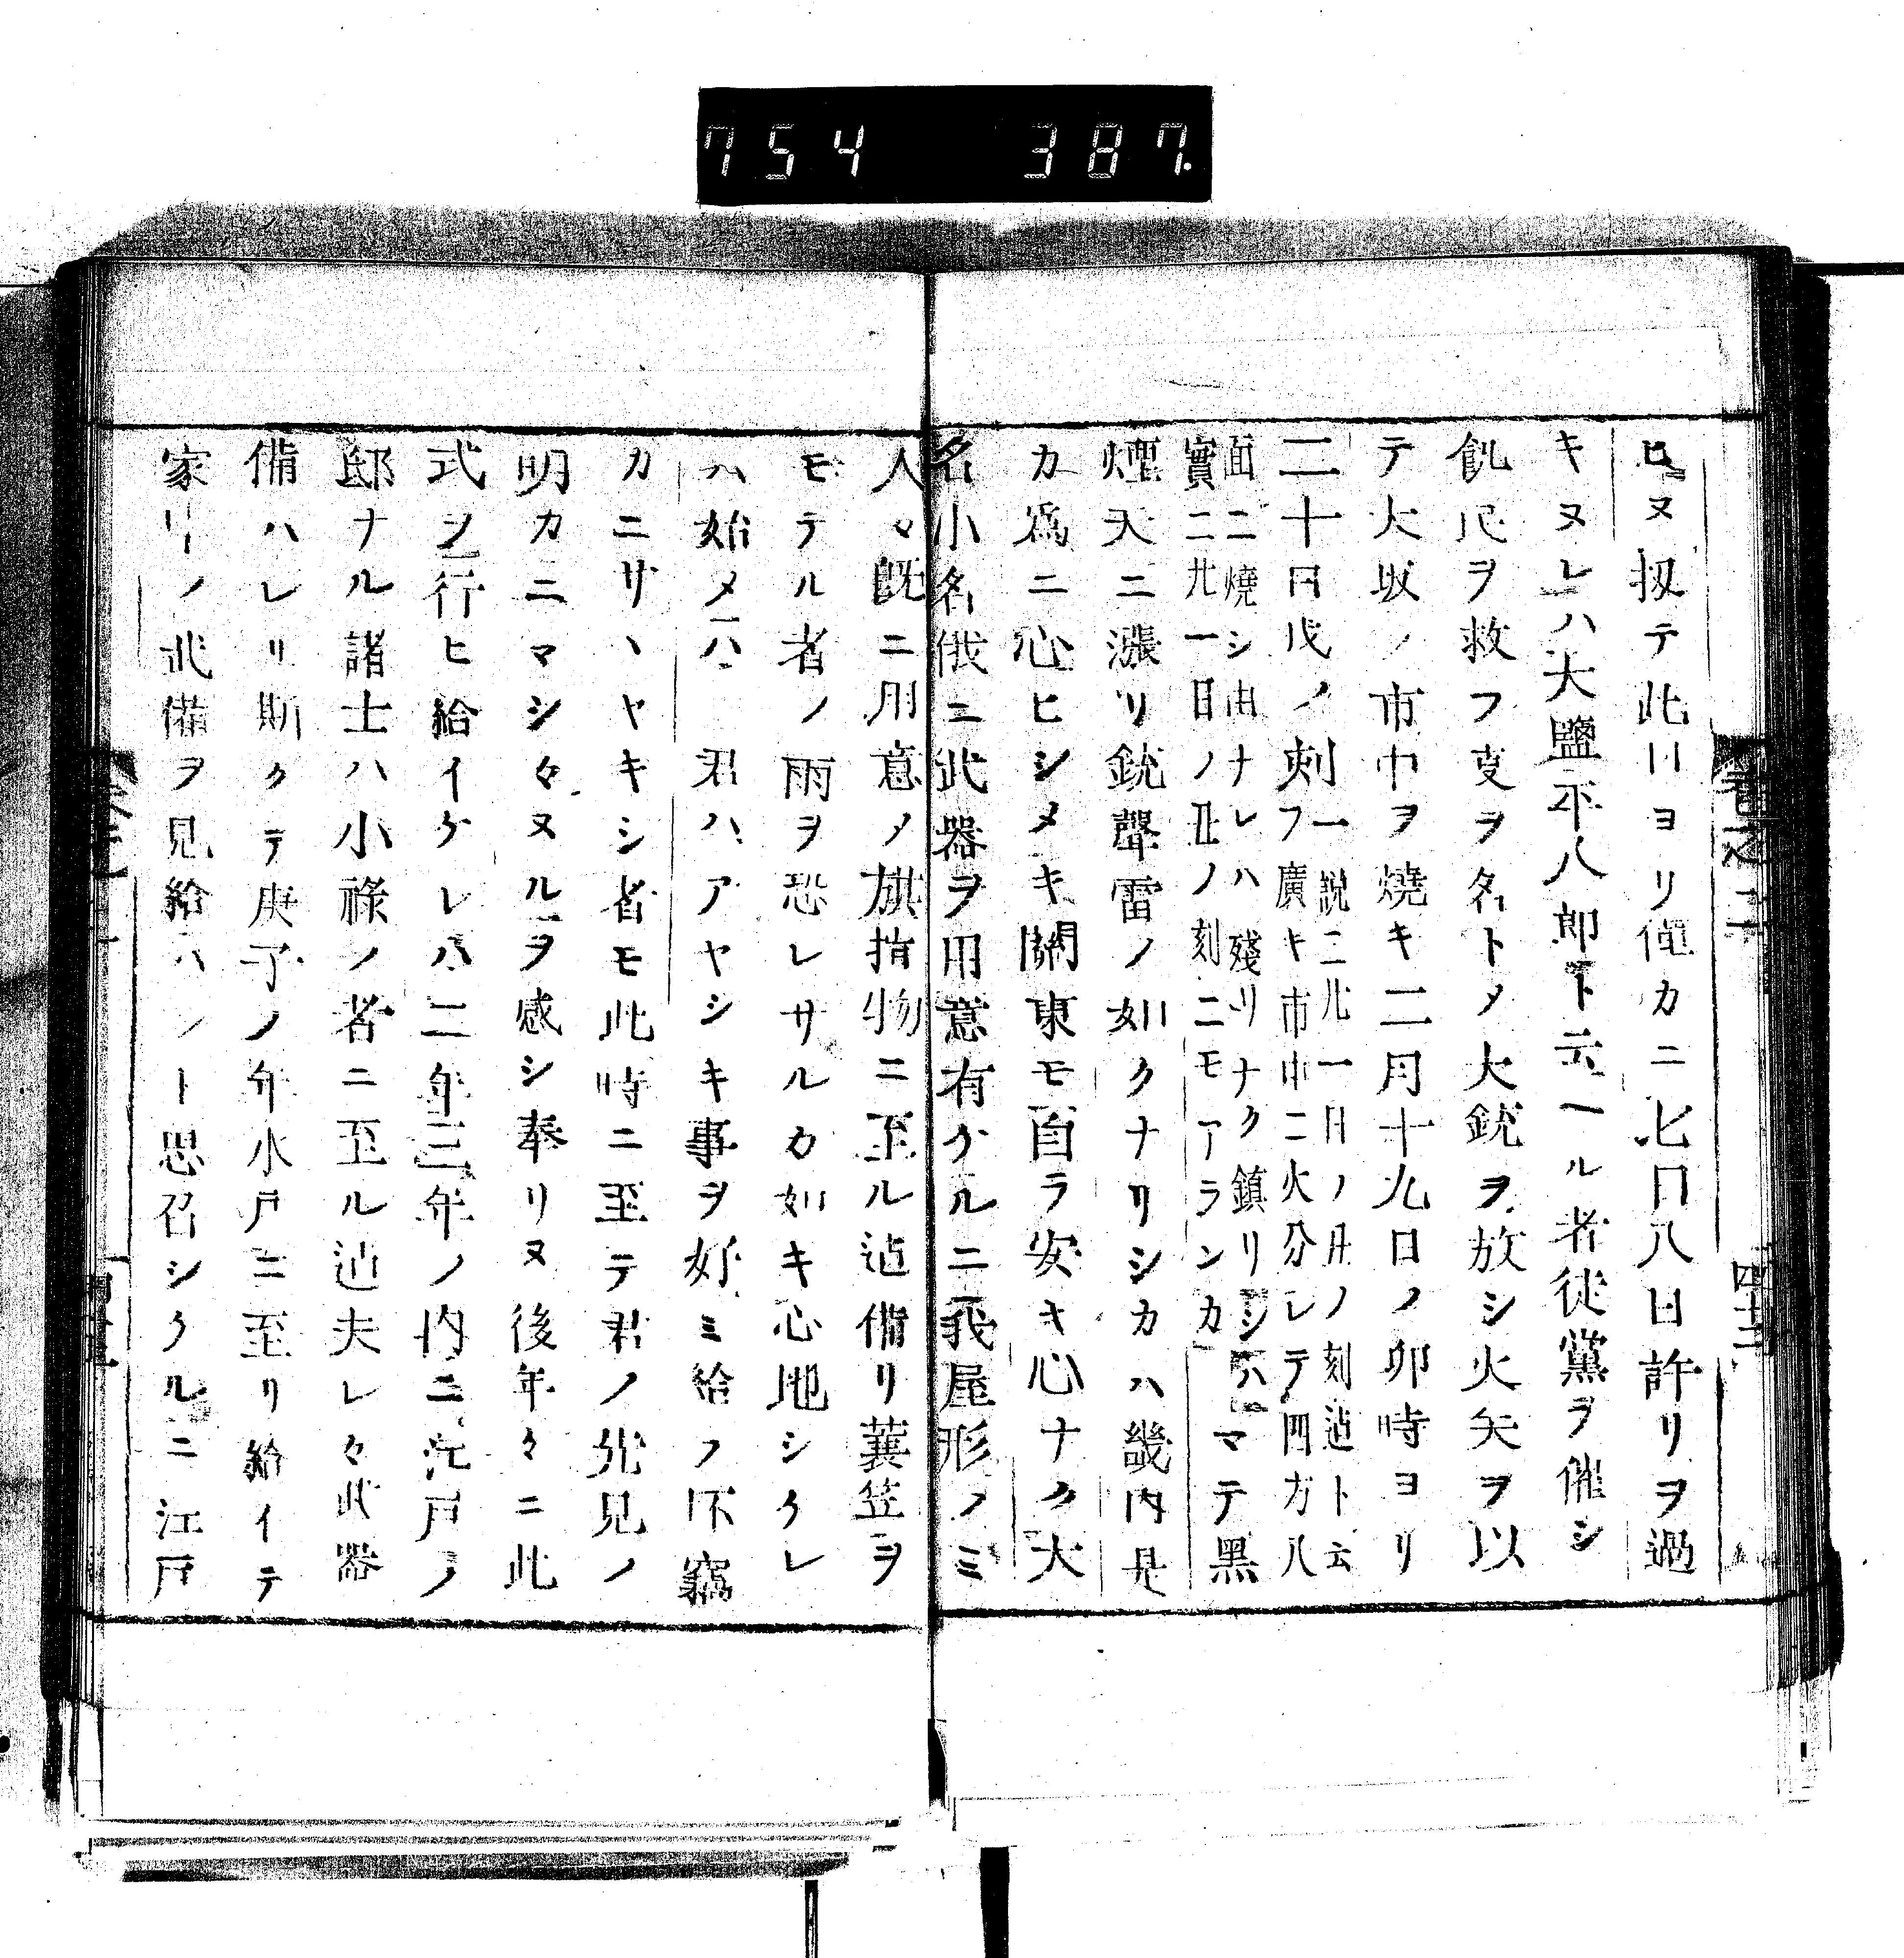 754 387
ヒヌ扨テ此日ヨリ僅カニ七日八日許リヲ過
キヌレハ大鹽平八郎ト云ヘル者徒黨ヲ催シ
飢民ヲ救フ叓ヲ名トメ大銃ヲ放シ火矢ヲ以
テ大坂ノ市中ヲ燒キ二月十九日ノ卯時ヨリ
二十日戌ノ刻
一說ニ九一日ノ丑ノ刻迠ト云
フ廣キ市中ニ火分レテ四方八
面ニ燒シ由ナレハ殘リナク鎮リシハ
實ニ九一日ノ丑ノ刻ニモアランカ
マテ黑
煙天ニ漲リ銃聲雷ノ如クナリシカハ畿內是
カ爲ニ心ヒシメキ關東モ自ラ安キ心ナク大
名小名俄ニ武器ヲ用意有ケルニ我屋形ノミ
人々既ニ用意ノ旗指物ニ至ル迠備リ蓑笠ヲ
モテル者ノ雨ヲ恐レサルカ如キ心地シケレ
ハ始メハ 君ハアヤシキ事ヲ好ミ給フ抔竊
カニサヽヤキシ者モ此時ニ至テ君ノ先見ノ
明カニマシタヌルヲ感シ奉リヌ後年々ニ此
式ヲ行ヒ給イケレハ二年三年ノ內ニ江戸ノ
邸ナル諸士ハ小祿ノ者ニ至ル迠夫レ々武器
備ハレリ斯クテ庚子ノ年水戸ニ至リ給イテ
家リノ武備ヲ見給ハント思召シケルニ江戸
卷之二
四十二